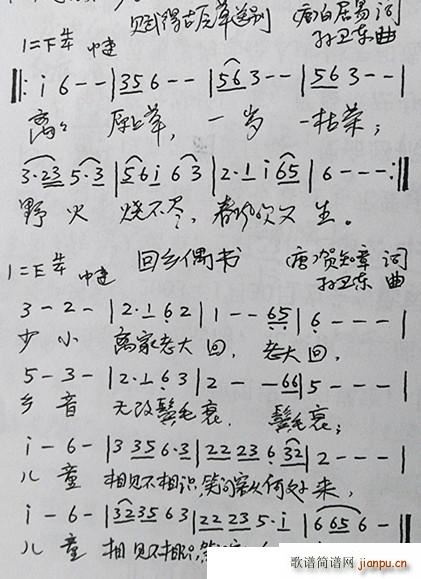 赋得古原草送别 唐白居易词
1=F 4/4 中速 孙卫东曲
‖: i 6 - - | 35 6 - - | 56 3 - - | 56 3 - - |
离离 原上草, 一岁 一枯荣;
3·23 5·3 | 56i 63 | 2·1 i 65 | 6 - - - :‖
野火 烧不尽, 春风吹又生。
回乡偶书 唐贺知章词
1=F 4/4 中速 孙卫东曲
3 - 2 - | 2·1 6 2 | 1 - - 65 | 6 - - - |
少小 离家老大回, 老大回,
5 - 3 - | 2·1 6 3 | 2 - - 66 | 5 - - - |
乡音 无改鬓毛衰, 鬓毛衰;
i - 6 - | 3 35 6·3 | 22 23 6 32 | 2 - - - |
儿童 相见不相识,笑问客从何处来,
i - 6 - | 3235 63 | 22 23 5·i | 6 65 6 - ‖
儿童 相见不相识,笑
歌谱简谱网
jianpu.cn